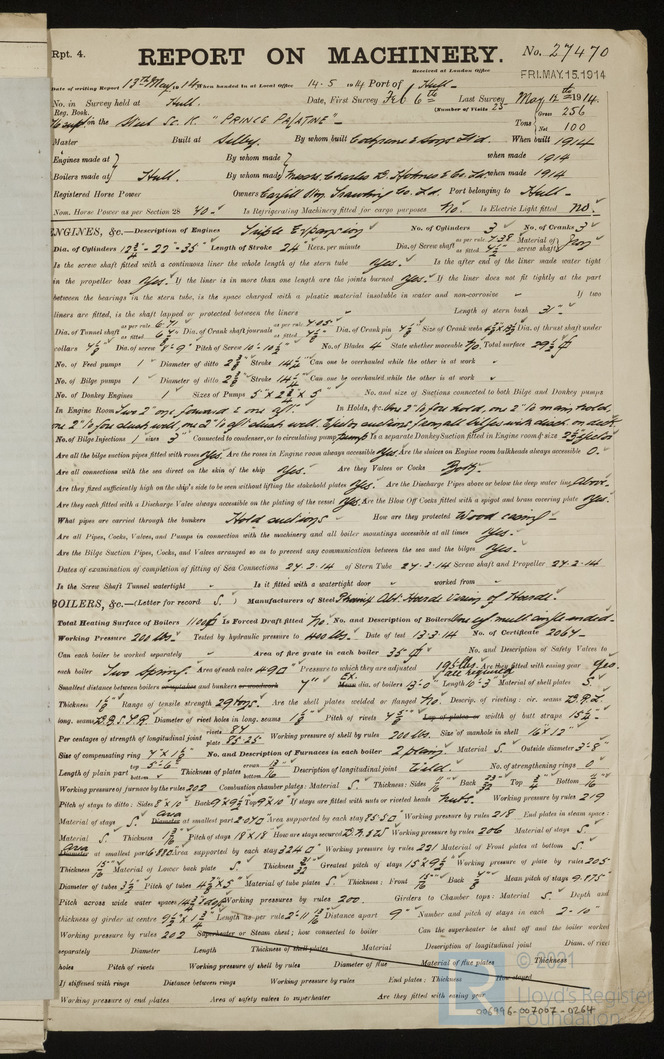 Rpt. 4.
REPORT ON MACHINERY.
No. 27470
Received at London Office
FRI. MAY. 15. 1914
Date of writing Report 13th May 1914 When handed in at Local Office 14.5.14 Port of Hull
No. in Survey held at Hull. Date, First Survey Feb 6th Last Survey May 14th 1914.
Reg. Book. (Number of Visits 23
on the Steel Sc. K. "PRINCE PALATINE" Tons Gross 256 Net 100
Master Built at Selby. By whom built Cochrane & Sons Ltd. When built 1914
Engines made at By whom made when made 1914
Boilers made at Hull. By whom made Messrs. Charles D. Holmes & Co. Ltd when made 1914
Registered Horse Power Owners Steam Co. Ld. Port belonging to Hull
Nom. Horse Power as per Section 28 70 Is Refrigerating Machinery fitted for cargo purposes No. Is Electric Light fitted No.
ENGINES, &c.—Description of Engines Triple Expansion No. of Cylinders 3 No. of Cranks 3
Dia. of Cylinders 12¾-22-35 Length of Stroke 24 Revs. per minute Dia. of Screw shaft as per rule 7.38 as fitted Material of screw shaft Iron
Is the screw shaft fitted with a continuous liner the whole length of the stern tube Yes. Is the after end of the liner made water tight
in the propeller boss Yes. If the liner is in more than one length are the joints burned Yes. If the liner does not fit tightly at the part
between the bearings in the stern tube, is the space charged with a plastic material insoluble in water and non-corrosive If two
liners are fitted, is the shaft lapped or protected between the liners Length of stern bush 31"
Dia. of Tunnel shaft as per rule 6.71 as fitted Dia. of Crank shaft journals as per rule 7.05 as fitted Dia. of Crank pin Size of Crank webs Dia. of thrust shaft under
collars Dia. of screw 8'-9" Pitch of Screw 10'-10½" No. of Blades 4 State whether moveable No. Total surface 29½
No. of Feed pumps 1 Diameter of ditto Stroke 14¼ Can one be overhauled while the other is at work
No. of Bilge pumps 1 Diameter of ditto Stroke 14¼ Can one be overhauled while the other is at work
No. of Donkey Engines 1 Sizes of Pumps No. and size of Suctions connected to both Bilge and Donkey pumps
In Engine Room Two 2" one forward & one aft. In Holds, &c. One 2" to fore hold, one 2" to main hold,
one 2" to fore slush well, one 2" to aft slush well. Ejector suctions from all bilges with disch. on deck
No. of Bilge Injections 1 sizes 3" Connected to condenser, or to circulating pump Pump Is a separate Donkey Suction fitted in Engine room & size 2½ Ejector
Are all the bilge suction pipes fitted with roses Yes. Are the roses in Engine room always accessible Yes. Are the sluices on Engine room bulkheads always accessible 0.
Are all connections with the sea direct on the skin of the ship Yes. Are they Valves or Cocks Both.
Are they fixed sufficiently high on the ship's side to be seen without lifting the stokehold plates Yes. Are the Discharge Pipes above or below the deep water line Above.
Are they each fitted with a Discharge Valve always accessible on the plating of the vessel Yes. Are the Blow Off Cocks fitted with a spigot and brass covering plate Yes.
What pipes are carried through the bunkers Hold suctions How are they protected Wood casing
Are all Pipes, Cocks, Valves, and Pumps in connection with the machinery and all boiler mountings accessible at all times Yes.
Are the Bilge Suction Pipes, Cocks, and Valves arranged so as to prevent any communication between the sea and the bilges Yes.
Dates of examination of completion of fitting of Sea Connections 27.2.14 of Stern Tube 27.2.14 Screw shaft and Propeller 27.2.14
Is the Screw Shaft Tunnel watertight Is it fitted with a watertight door worked from
BOILERS, &c.—(Letter for record S.) Manufacturers of Steel Phoenix Abt. Hoerde Verein of Hoerde.
Total Heating Surface of Boilers 1100 Is Forced Draft fitted No. No. and Description of Boilers One cyl. mult. single ended.
Working Pressure 200 lbs. Tested by hydraulic pressure to 400 lbs. Date of test 13.3.14 No. of Certificate 2067
Can each boiler be worked separately Area of fire grate in each boiler 35 No. and Description of Safety Valves to
each boiler Two Spring. Area of each valve 4.90 Pressure to which they are adjusted 195 lbs. as required Are they fitted with easing gear Yes.
Smallest distance between boilers or uptakes and bunkers or woodwork 7" Ex. Mean dia. of boilers 13'-0" Length 10'-3" Material of shell plates S
Thickness Range of tensile strength 29 tons. Are the shell plates welded or flanged No. Descrip. of riveting: cir. seams D.R.L.
long. seams D.B.S.T.R. Diameter of rivet holes in long. seams Pitch of rivets Lap of plates or width of butt straps
Per centages of strength of longitudinal joint rivets 87 plate 85.25 Working pressure of shell by rules 200 lbs. Size of manhole in shell 16" x 12"
Size of compensating ring No. and Description of Furnaces in each boiler 2 plain Material S. Outside diameter 3'-8"
Length of plain part top 5'-6" bottom Thickness of plates crown bottom Description of longitudinal joint Weld. No. of strengthening rings 0
Working pressure of furnace by the rules 202 Combustion chamber plates: Material S. Thickness: Sides Back Top Bottom
Pitch of stays to ditto: Sides 8"x10" Back Top 9"x10" If stays are fitted with nuts or riveted heads Nuts. Working pressure by rules 219
Material of stays S. Area Diameter at smallest part 2.070 Area supported by each stay Working pressure by rules 218 End plates in steam space:
Material S. Thickness Pitch of stays 18"x18" How are stays secured D.N. & W. Working pressure by rules 206 Material of stays S.
Area Diameter at smallest part Area supported by each stay 324 Working pressure by rules 221 Material of Front plates at bottom S.
Thickness Material of Lower back plate S. Thickness Greatest pitch of stays Working pressure of plate by rules 205
Diameter of tubes 3½ Pitch of tubes Material of tube plates S. Thickness: Front Back Mean pitch of stays 9.175
Pitch across wide water spaces Working pressures by rules 200. Girders to Chamber tops: Material S. Depth and
thickness of girder at centre Length as per rule Distance apart 9" Number and pitch of stays in each 2-10"
Working pressure by rules 202 Superheater or Steam chest; how connected to boiler Can the superheater be shut off and the boiler worked
separately Diameter Length Thickness of shell plates Material Description of longitudinal joint Diam. of rivet
holes Pitch of rivets Working pressure of shell by rules Diameter of flue Material of flue plates Thickness
If stiffened with rings Distance between rings Working pressure by rules End plates: Thickness How stayed
Working pressure of end plates Area of safety valves to superheater Are they fitted with easing gear
© 2021
LR
Lloyd's Register
Foundation
006996-007007-0264